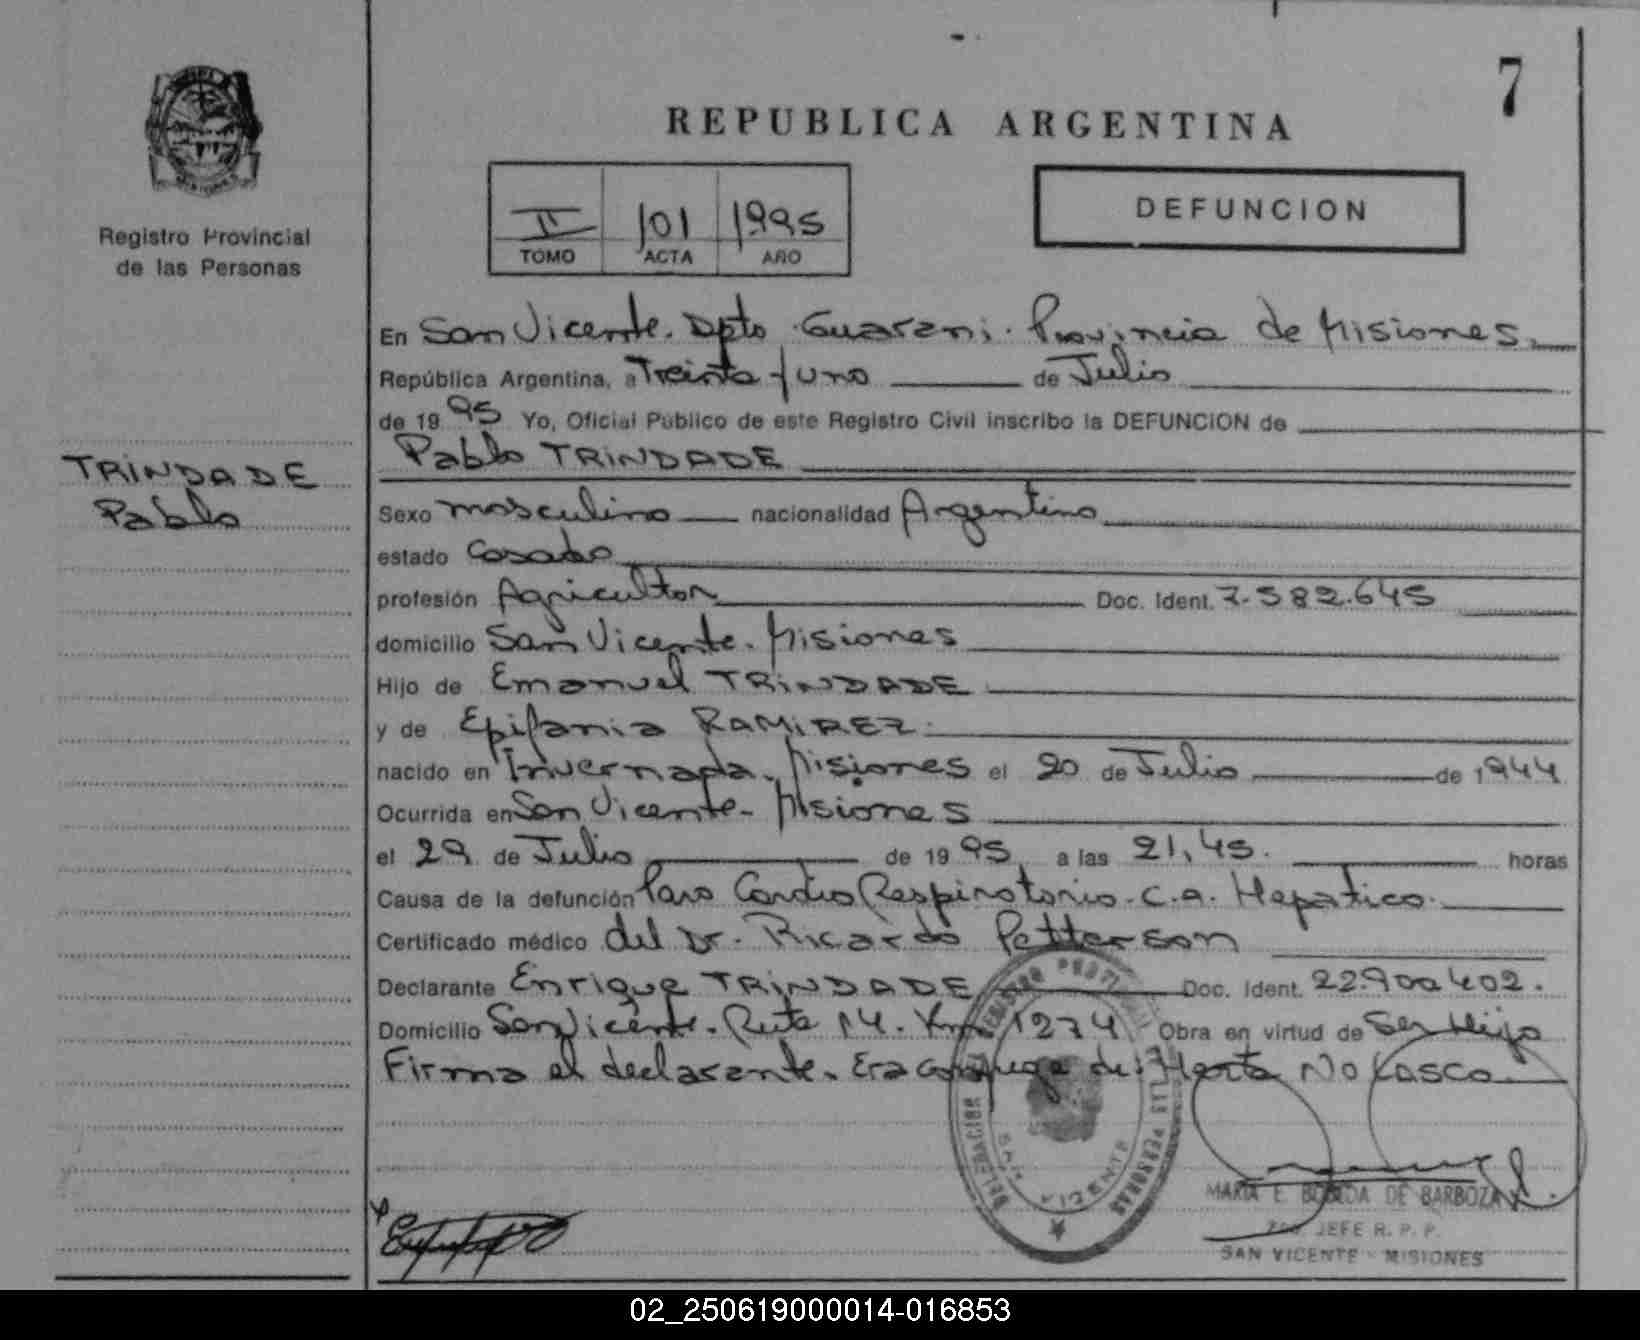 7
REPUBLICA ARGENTINA
Registro Provincial
de las Personas
II 101 1995
TOMO ACTA AÑO
DEFUNCION
TRINDADE
Pablo
En San Vicente. Dpto. Guarani. Provincia de Misiones.
República Argentina, a Treinta y uno de Julio
de 1995 Yo, Oficial Público de este Registro Civil inscribo la DEFUNCION de
Pablo TRINDADE
Sexo masculino nacionalidad Argentino
estado Casado
profesión Agricultor Doc. Ident. 7.582.645
domicilio San Vicente. Misiones
Hijo de Emanuel TRINDADE
y de Epifania RAMIREZ.
nacido en Invernada. Misiones el 20 de Julio de 1944
Ocurrida en San Vicente- Misiones
el 29 de Julio de 1995 a las 21,45. horas
Causa de la defunción Paro Cardio Respiratorio. C.A. Hepatico.
Certificado médico del Dr. Ricardo Petterson
Declarante Enrique TRINDADE Doc. Ident. 22.900.402.
Domicilio San Vicente. Ruta 14. Km 1274 Obra en virtud de Ser Hijo
Firma el declarante. Era conyuge de: Herta No Lasco
DELEGACION REGISTRO PROVINCIAL DE LAS PERSONAS
SAN VICENTE
MARIA E. DE BARBOZA
2do. JEFE R. P. P.
SAN VICENTE - MISIONES
02_250619000014-016853